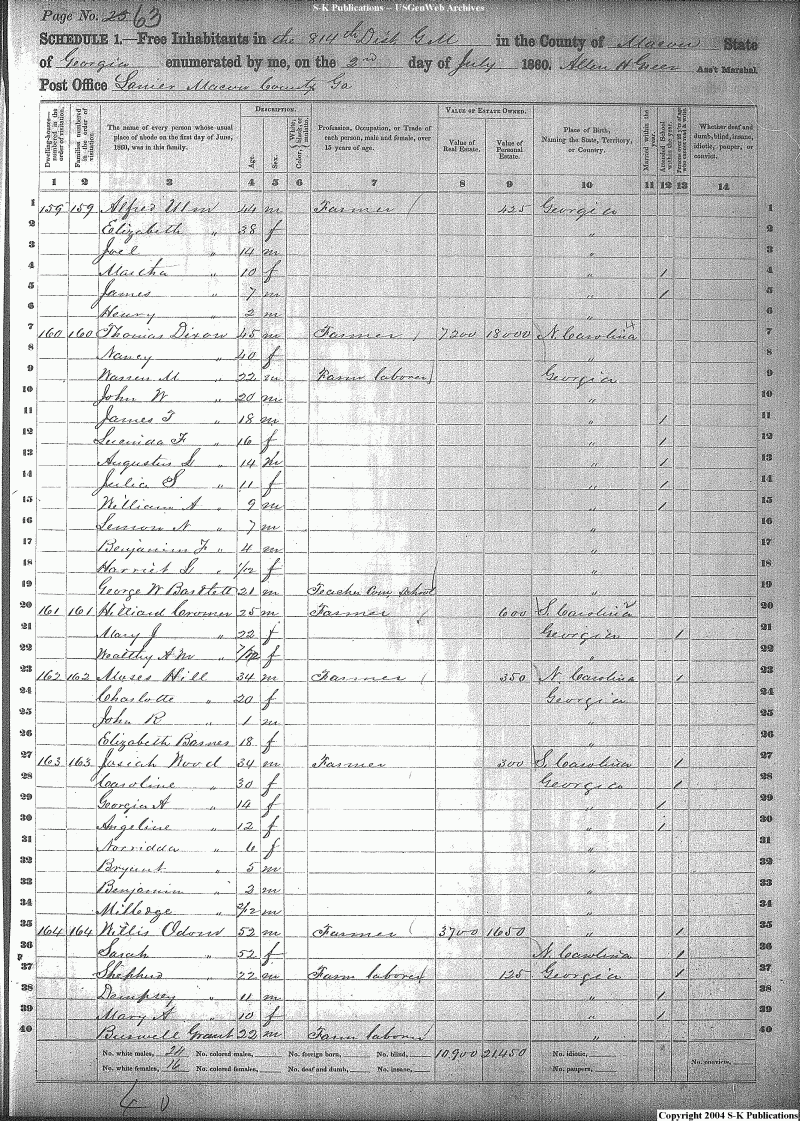 S-K Publications – USGenWeb Archives
Page No. 25 63
SCHEDULE 1.—Free Inhabitants in the 814th Dist G.M in the County of Macon State
of Georgia enumerated by me, on the 2nd day of July 1860. Allen H Greer Ass't Marshal.
Post Office Lanier Macon County Ga
Dwelling-houses—numbered in the order of visitation. Families numbered in the order of visitation. The name of every person whose usual place of abode on the first day of June, 1860, was in this family. DESCRIPTION. Age. Sex. Color, White, black, or mulatto. Profession, Occupation, or Trade of each person, male and female, over 15 years of age. VALUE OF ESTATE OWNED. Value of Real Estate. Value of Personal Estate. Place of Birth, Naming the State, Territory, or Country. Married within the year. Attended School within the year. Whether deaf and dumb, blind, insane, idiotic, pauper, or convict.
1 2 3 4 5 6 7 8 9 10 11 12 13 14
1 159 159 Alfred Ulm 44 m Farmer 425 Georgia 1
2 Elizabeth " 38 f " 2
3 Joel " 14 m " 3
4 Martha " 10 f " 1 4
5 James " 7 m " 1 5
6 Henry " 2 m " 6
7 160 160 Thomas Dixon 45 m Farmer 7200 18000 N. Carolina 7
8 Nancy " 40 f " 8
9 Warren M " 22 m Farm laborer Georgia 9
10 John W " 20 m " 10
11 James T " 18 m " 1 11
12 Lucinda F " 16 f " 1 12
13 Augustus L " 14 m " 1 13
14 Julia S " 11 f " 1 14
15 William A " 9 m " 1 15
16 Lemon N " 7 m " 16
17 Benjamin F " 4 m " 17
18 Harriet L " 1/12 f " 18
19 George W Bartlett 21 m Teacher Com School " 19
20 161 161 Hilliard Cromer 25 m Farmer 600 S. Carolina 20
21 Mary J " 22 f Georgia 1 21
22 Wealthy A M " 7/12 f " 22
23 162 162 Moses Hill 34 m Farmer 350 N. Carolina 1 23
24 Charlotte " 20 f Georgia 24
25 John R " 1 m " 25
26 Elizabeth Barnes 18 f " 26
27 163 163 Josiah Wood 34 m Farmer 300 S. Carolina 1 27
28 Caroline " 30 f Georgia 1 28
29 Georgia A " 14 f " 1 29
30 Angeline " 12 f " 1 30
31 Norridda " 6 f " 31
32 Bryant " 5 m " 32
33 Benjamin " 3 m " 33
34 Milledge " 2/12 m " 34
35 164 164 Willis Odom 52 m Farmer 3700 1650 " 1 35
36 Sarah " 52 f N. Carolina 1 36
37 Shepherd " 22 m Farm laborer 125 Georgia 1 37
38 Dempsey " 11 m " 1 38
39 Mary A " 10 f " 1 39
40 Burwell Grant 22 m Farm laborer " 40
No. white males, 24 No. colored males, No. foreign born, No. blind, 10,900 21,450 No. idiotic, No. convicts,
No. white females, 16 No. colored females, No. deaf and dumb, No. insane, No. paupers,
Copyright 2004 S-K Publications